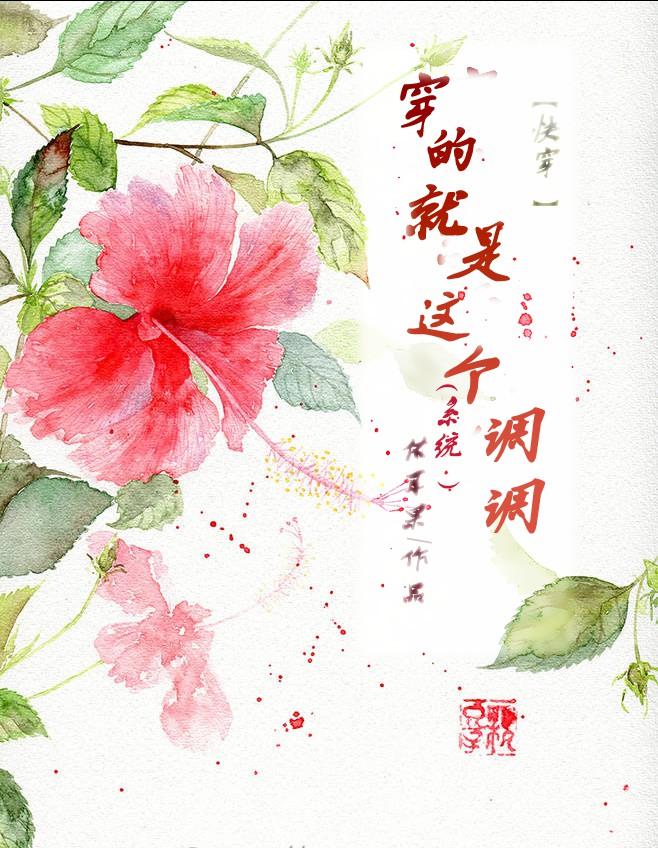 【快穿】
穿的就是这个调调
（系统）
作品